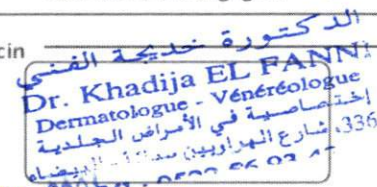 cin
الدكتورة خديجة الفني
Dr. Khadija EL FANNI
Dermatologue - Vénéréologue
إختصاصية في الأمراض الجلدية
336، شارع الهراويين البيضاء